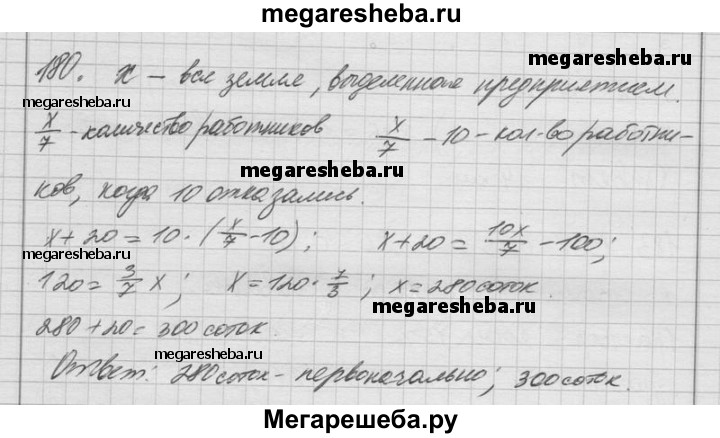 megaresheba.ru
180. x – вся земля, выделенная предприятием.
megaresheba.ru
x/7 - количество работников x/7 - 10 - кол-во работни-
megaresheba.ru
ков, когда 10 отказались.
x + 20 = 10 · (x/7 - 10); x + 20 = 10x/7 - 100;
megaresheba.ru
120 = 3/7 x; x = 120 · 7/3; x = 280 соток.
megaresheba.ru
280 + 20 = 300 соток.
megaresheba.ru
Ответ: 280 соток - первоначально; 300 соток.
Мегарешеба.ру